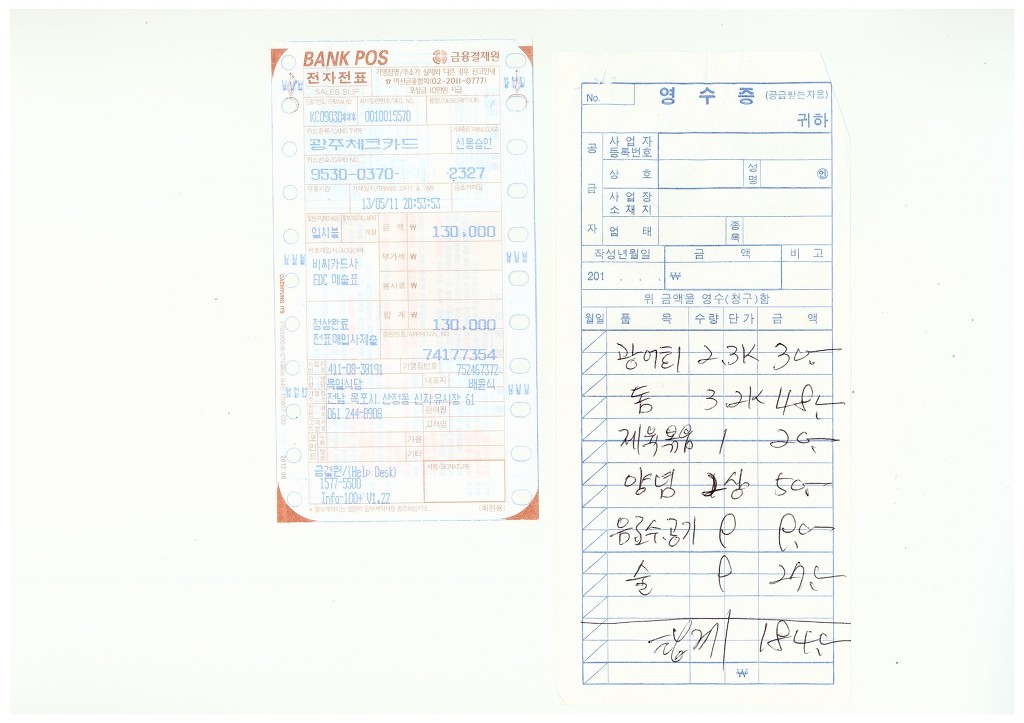 BANK POS 금융결제원
전자전표
SALES SLIP
가맹점명/주소가 실제와 다른 경우 신고안내
☎ 여신금융협회(02-2011-0777)
포상금 10만원 지급
KC09030*** 0010015570
카드종류/CARD TYPE
광주체크카드 신용승인
카드번호/CARD NO.
9530-0370- 2327
유효기간 거래일시/TRANS. DATE & TIME
13/05/11 20:53:53
일시불 금 액 ₩ 130,000
비씨카드사 부가세 ₩
EDC 매출표
봉사료 ₩
정상완료 합 계 ₩ 130,000
전표매입사제출 승인번호/APPROVAL NO.
74177354
411-08-38191 가맹점번호 752467372
목일식당 대표자 배윤식
전남 목포시 산정동 신자유시장 61
061 244-8908 판매원
고객명
가용
기타
금결원/(Help Desk) 서명/SIGNATURE
1577-5500
Info-100+ V1.22
(회원용)
No. 영 수 증 (공급받는자용)
귀하
공급자
사업자등록번호
상 호 성명 ㊞
사업장소재지
업 태 종목
작성년월일 금 액 비 고
201 . . . ₩
위 금액을 영수(청구)함
월일 품 목 수량 단가 금 액
광어티 2.3K 30,-
돔 3.2K 48,-
제육볶음 1 20,-
양념 2상 50,-
음료수.공기 9 9,-
술 9 27,-
합계 184,-
₩